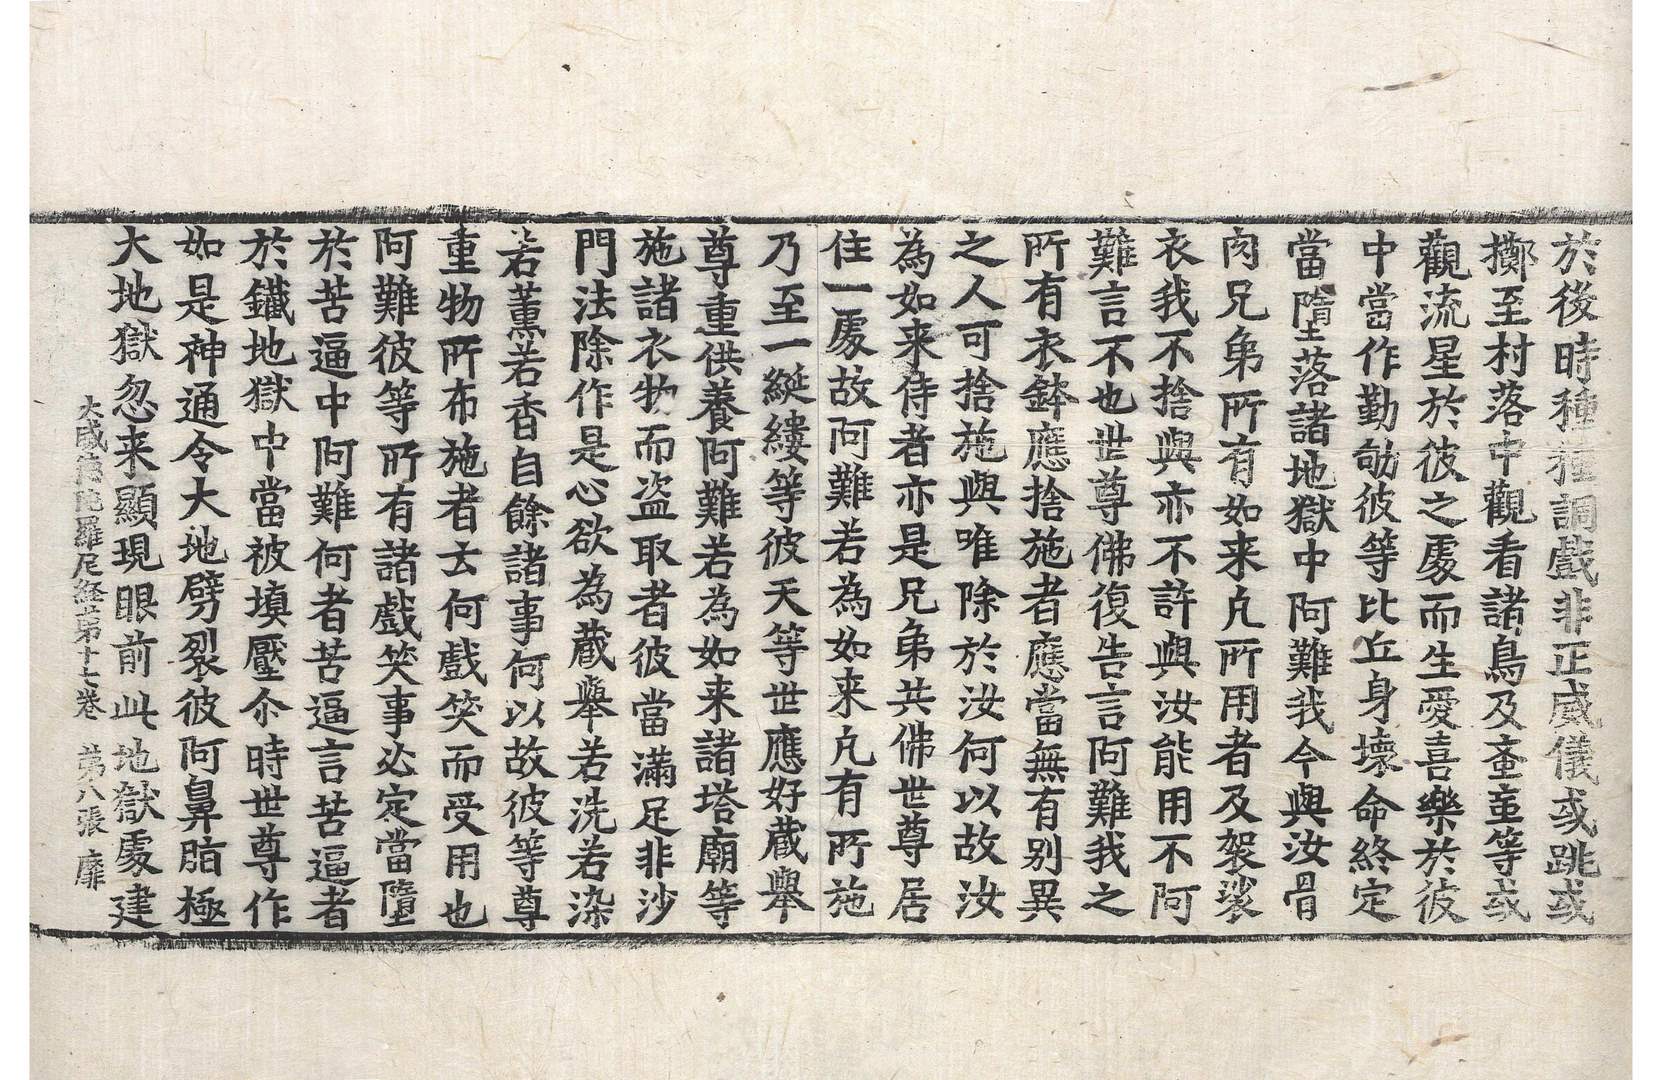 於後時種種調戲非正威儀或跳或
擲至村落中觀看諸鳥及畜童等或
觀流星於彼之處而生愛喜樂於彼
中當作勤劬彼等比丘身壞命終定
當墮落諸地獄中阿難我今與汝骨
肉兄弟所有如来凡所用者及袈裟
衣我不捨與亦不許與汝能用不阿
難言不也世尊佛復告言阿難我之
所有衣鉢應捨施者應當無有別異
之人可捨施與唯除於汝何以故汝
為如来侍者亦是兄弟共佛世尊居
住一處故阿難若為如来凡有所施
乃至一綖縷等彼天等世應好藏舉
尊重供養阿難若為如来諸塔廟等
施諸衣物而盜取者彼當滿足非沙
門法除作是心欲為藏舉若洗若染
若薰若香自餘諸事何以故彼等尊
重物所布施者云何戲笑而受用也
阿難彼等所有諸戲笑事必定當墮
於苦逼中阿難何者苦逼言苦逼者
於鐵地獄中當被填壓尒時世尊作
如是神通令大地劈裂彼阿鼻脂極
大地獄忽来顯現眼前此地獄處建
大威德陁羅尼経苐十七卷　苐八張　靡